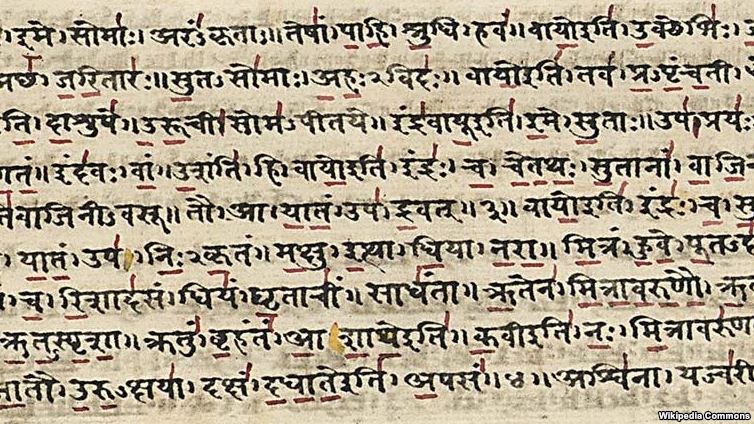 । इमे। सोमाः। अरंऽकृताः॥ तेषां। पाहि। श्रुधि। हवं॥ वायोइति। उक्थेभिः।
अछ। जरितारः॥ सुतऽसोमाः। अहःऽविदः॥ वायोइति। तव। प्रऽपृंचती।
ति। दाशुषे॥ उरूची। सोमऽपीतये॥ इंद्रवायूइति। इमे। सुताः॥ उप। प्रयः
गतं॥ इंदवः। वां। उशंति। हि॥ वायोइति। इंद्रः। च। चेतथः। सुतानां। वाजि
तिवाजिनीऽवसू॥ तौ। आ। यातं। उप। द्रवत्॥३॥ वायोइति। इंद्रः। च। सु
। यातं। उप। निःऽकृतं॥ मक्षु। इत्था। धिया। नरा॥ मित्रं। हुवे। पूतऽद
। च। रिशादसं॥ धियं। घृताचीं॥ साधंता॥ ऋतेन। मित्रावरुणौ। ऋ
ऋतऽस्पृशा॥ क्रतुं। बृहंतं। आशाथेइति॥ कवीइति। नः। मित्रावरुणा
जातौ। उरुऽक्षया॥ दक्षं। दधातेइति। अपसं॥४॥ अश्विना। यज्वरी
Wikipedia Commons